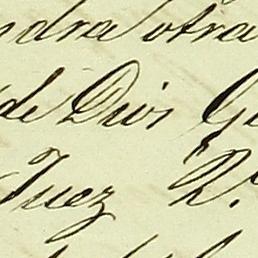 ndra otra
de Dios G
Juez 2.